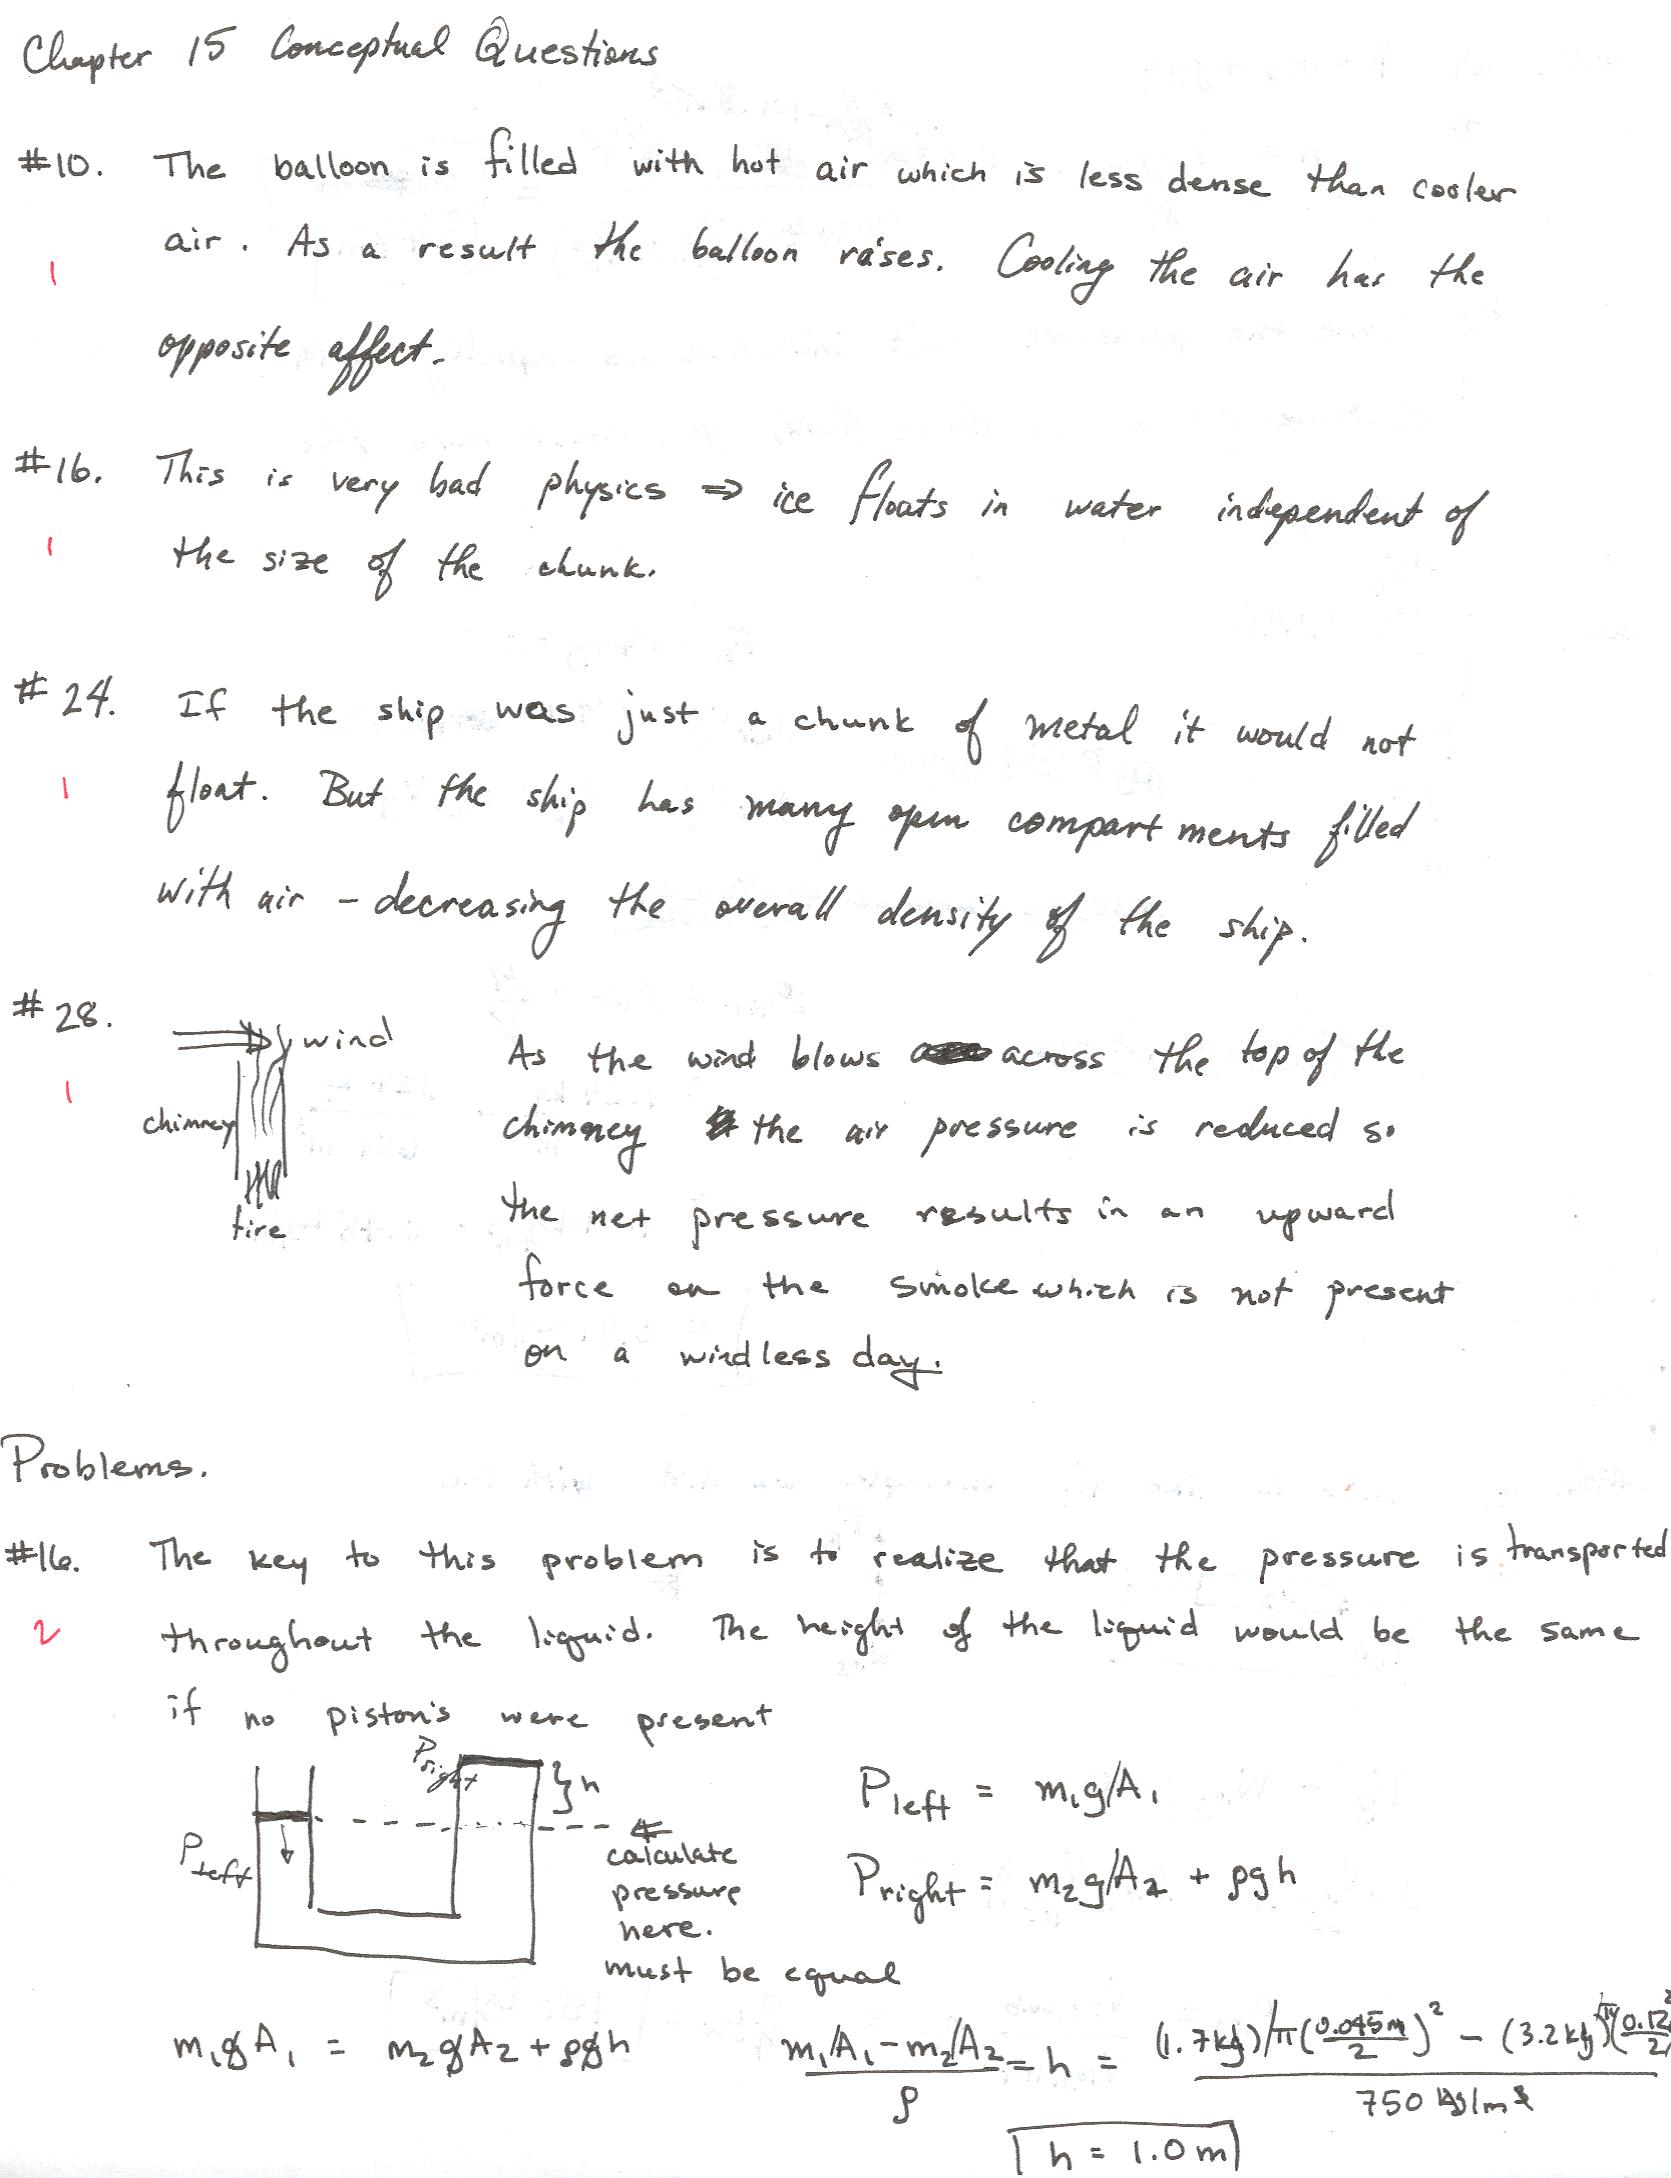 Chapter 15 Conceptual Questions
#10. The balloon is filled with hot air which is less dense than cooler
air. As a result the balloon raises. Cooling the air has the
1
opposite affect.
#16. This is very bad physics ⇒ ice floats in water independent of
1 the size of the chunk.
#24. If the ship was just a chunk of metal it would not
1 float. But the ship has many open compartments filled
with air - decreasing the overall density of the ship.
#28.
1
wind
chimney
fire
As the wind blows across the top of the
chimney the air pressure is reduced so
the net pressure results in an upward
force on the smoke which is not present
on a windless day.
Problems.
#16. The key to this problem is to realize that the pressure is transported
2 throughout the liquid. The height of the liquid would be the same
if no piston's were present
Pright
h
Pleft
calculate
pressure
here.
must be equal
Pleft = m₁g/A₁
Pright = m₂g/A₂ + ρgh
m₁gA₁ = m₂gA₂ + ρgh
(m₁/A₁ - m₂/A₂)/ρ = h = ((1.7kg)/π(0.045m/2)² - (3.2kg)/π(0.12/2)²)/750 kg/m³
h = 1.0 m